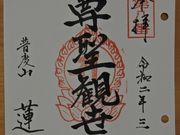 奉拝
令和二年三
尊聖観音
普慶山
蓮